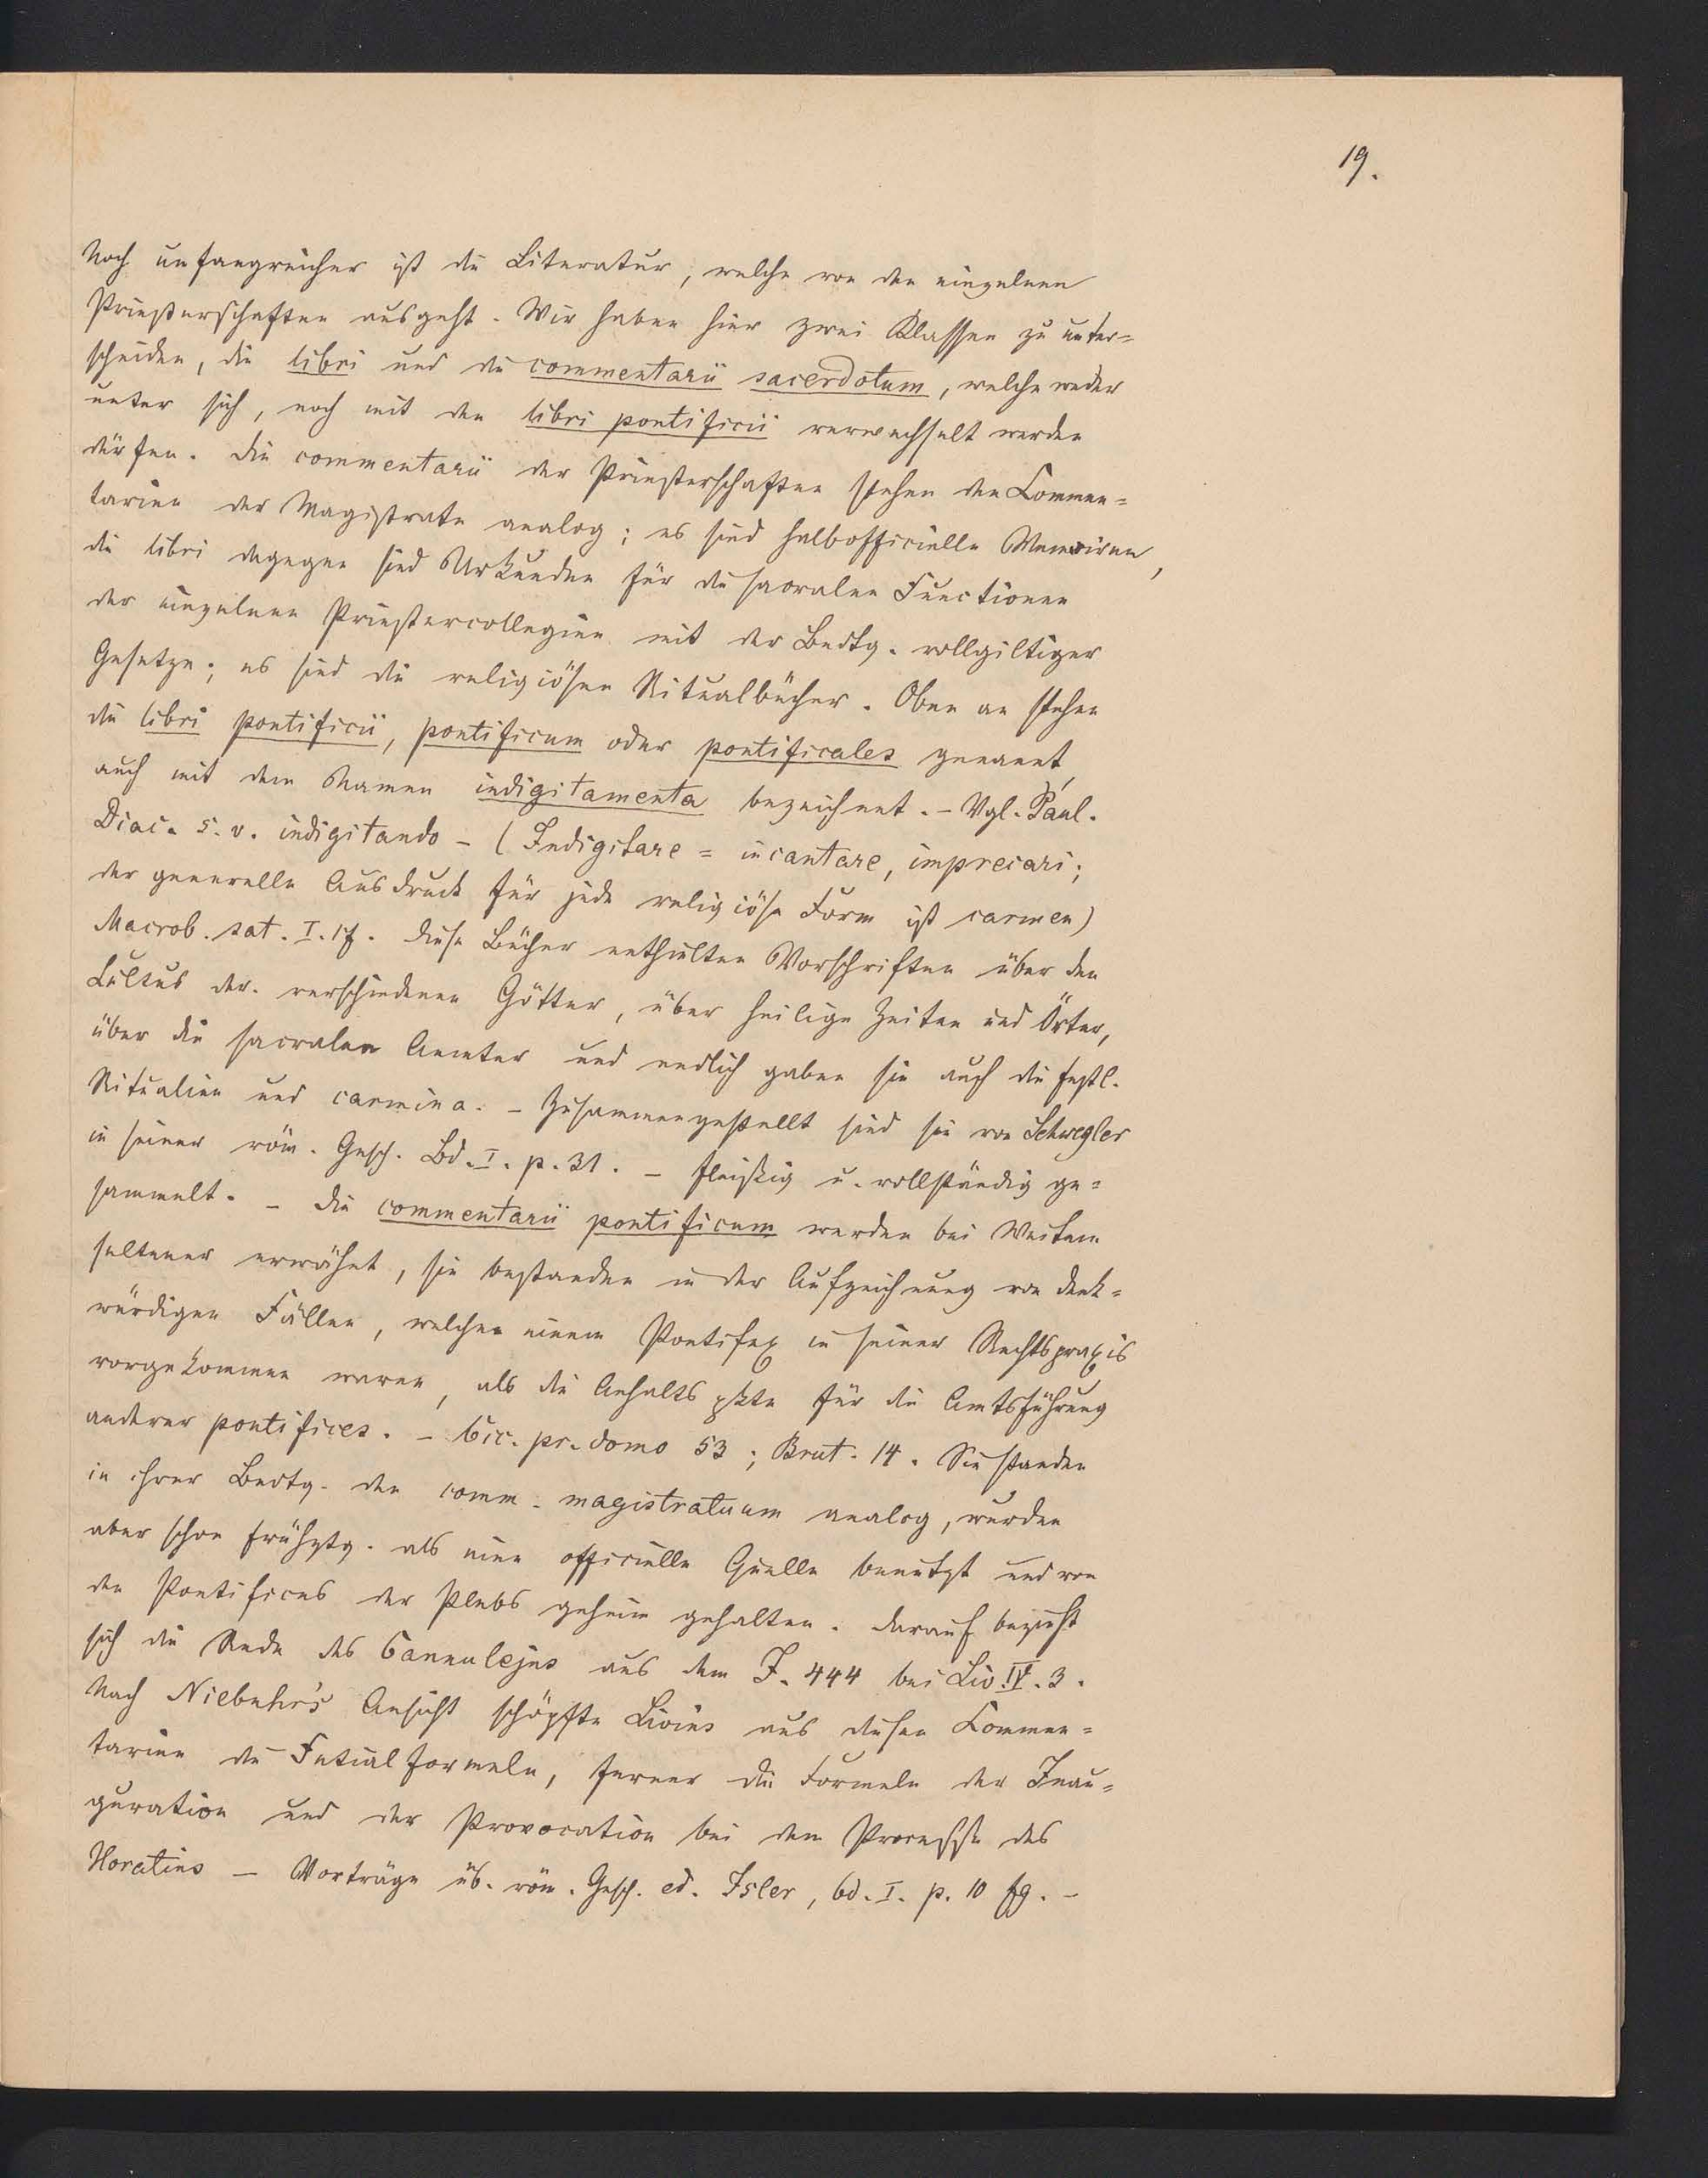 19.
Noch umfangreicher ist die Literatur, welche von den einzelnen
Priesterschaften ausgeht. Wir haben hier zwei Klassen zu unter=
scheiden, die libri und die commentarii sacerdotum, welche weder
unter sich, noch mit den libri pontificii verwechselt werden
dürfen. Die commentarii der Priesterschaften stehen den Commen=
tarien der Magistrate analog; es sind halbofficielle Memoiren,
die libri dagegen sind Urkunden für die sacralen Functionen
der einzelnen Priestercollegien mit der Bedtg. vollgiltiger
Gesetze; es sind die religiösen Ritualbücher. Oben an stehen
die libri pontificii, pontificum oder pontificales genannt,
auch mit dem Namen indigitamenta bezeichnet. – Vgl. Paul.
Diac. s. v. indigitando – (Indigitare = incantare, imprecari;
der generelle Ausdruck für jede religiöse Form ist carmen)
Macrob. sat. I. 17. Diese Bücher enthielten Vorschriften über den
Cultus der verschiedenen Götter, über heilige Zeiten und Örter,
über die sacralen Aemter und endlich gaben sie auch die festl.
Ritualien und carmina. – Zusammengestellt sind sie von Schwegler
in seiner röm. Gesch. Bd. I. p. 31. – fleißig u. vollständig ge=
sammelt. – Die commentarii pontificum werden bei Weitem
seltener erwähnt, sie bestanden in der Aufzeichnung von denk=
würdigen Fällen, welche einem Pontifex in seiner Rechtspraxis
vorgekommen waren, als die Anhaltspkte für die Amtsführung
anderer pontifices. – Cic. pr. domo 53; Brut. 14. Sie standen
in ihrer Bedtg. den comm. magistratuum analog, wurden
aber schon frühztg. als eine officielle Quelle benutzt und von
den Pontifices der Plebs geheim gehalten. Darauf bezieht
sich die Rede des Canulejus aus dem J. 444 bei Liv. IV. 3.
Nach Niebuhr's Ansicht schöpfte Livius aus diesen Commen=
tarien die Fetialformeln, ferner die Formeln der Inau=
guration und der Provocation bei dem Processe des
Horatius – Vorträge üb. röm. Gesch. ed. Isler, bd. I. p. 10 fg. –